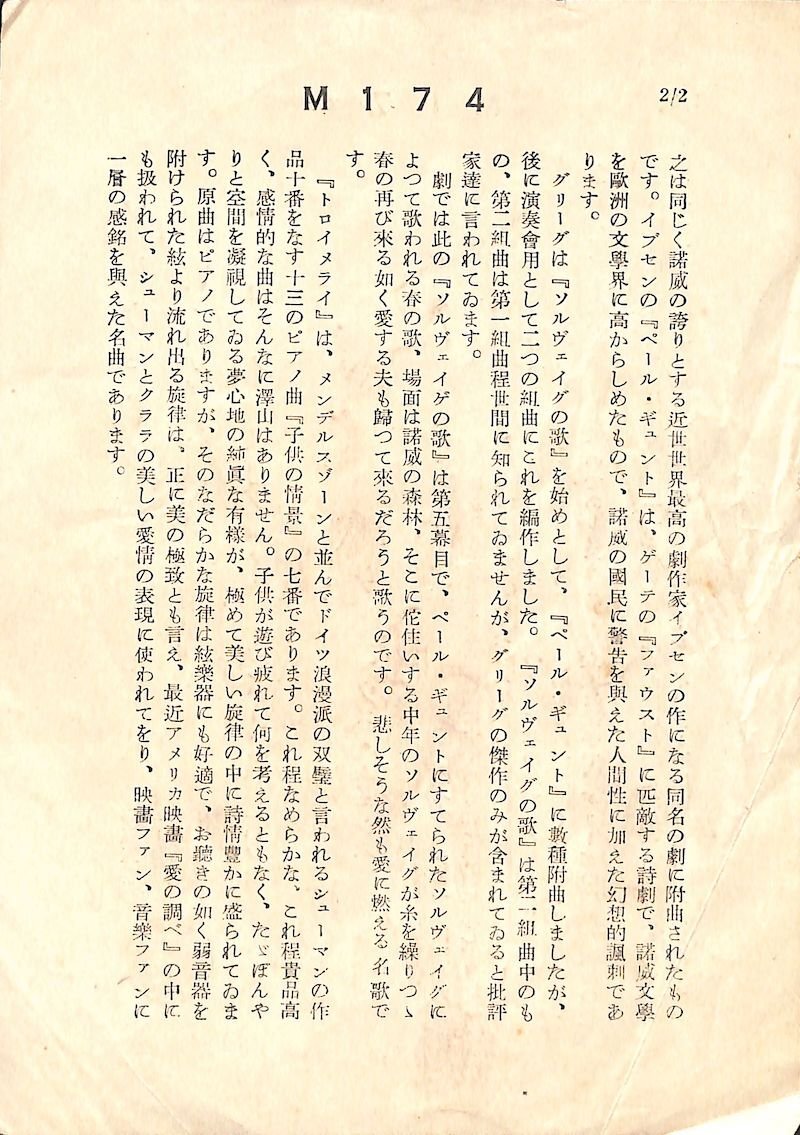 M174
2/2
之は同じく諾威の誇りとする近世世界最高の劇作家イブセンの作になる同名の劇に附曲されたもの
です。イブセンの『ペール・ギュント』は、ゲーテの『ファウスト』に匹敵する詩劇で、諾威文學
を歐洲の文學界に高からしめたもので、諾威の國民に警告を與えた人間性に加えた幻想的諷刺であ
ります。
グリーグは『ソルヴェイグの歌』を始めとして、『ペール・ギュント』に數種附曲しましたが、
後に演奏會用として二つの組曲にこれを編作しました。『ソルヴェイグの歌』は第二組曲中のも
の、第二組曲は第一組曲程世間に知られてゐませんが、グリーグの傑作のみが含まれてゐると批評
家達に言われてゐます。
劇では此の『ソルヴェイゲの歌』は第五幕目で、ペール・ギュントにすてられたソルヴェイグに
よつて歌われる春の歌、場面は諾威の森林、そこに佗住いする中年のソルヴェイグが糸を繰りつゝ
春の再び來る如く愛する夫も歸つて來るだろうと歌うのです。悲しそうな然も愛に燃える名歌で
す。
『トロイメライ』は、メンデルスゾーンと並んでドイツ浪漫派の双璧と言われるシューマンの作
品十番をなす十三のピアノ曲『子供の情景』の七番であります。これ程なめらかな、これ程貴品高
く、感情的な曲はそんなに澤山はありません。子供が遊び疲れて何を考えるともなく、たゞぼんや
りと空間を凝視してゐる夢心地の純眞な有様が、極めて美しい旋律の中に詩情豊かに盛られてゐま
す。原曲はピアノでありますが、そのなだらかな旋律は絃樂器にも好適で、お聽きの如く弱音器を
附けられた絃より流れ出る旋律は、正に美の極致とも言え、最近アメリカ映畵『愛の調べ』の中に
も扱われて、シューマンとクララの美しい愛情の表現に使われてをり、映畵ファン、音樂ファンに
一層の感銘を與えた名曲であります。